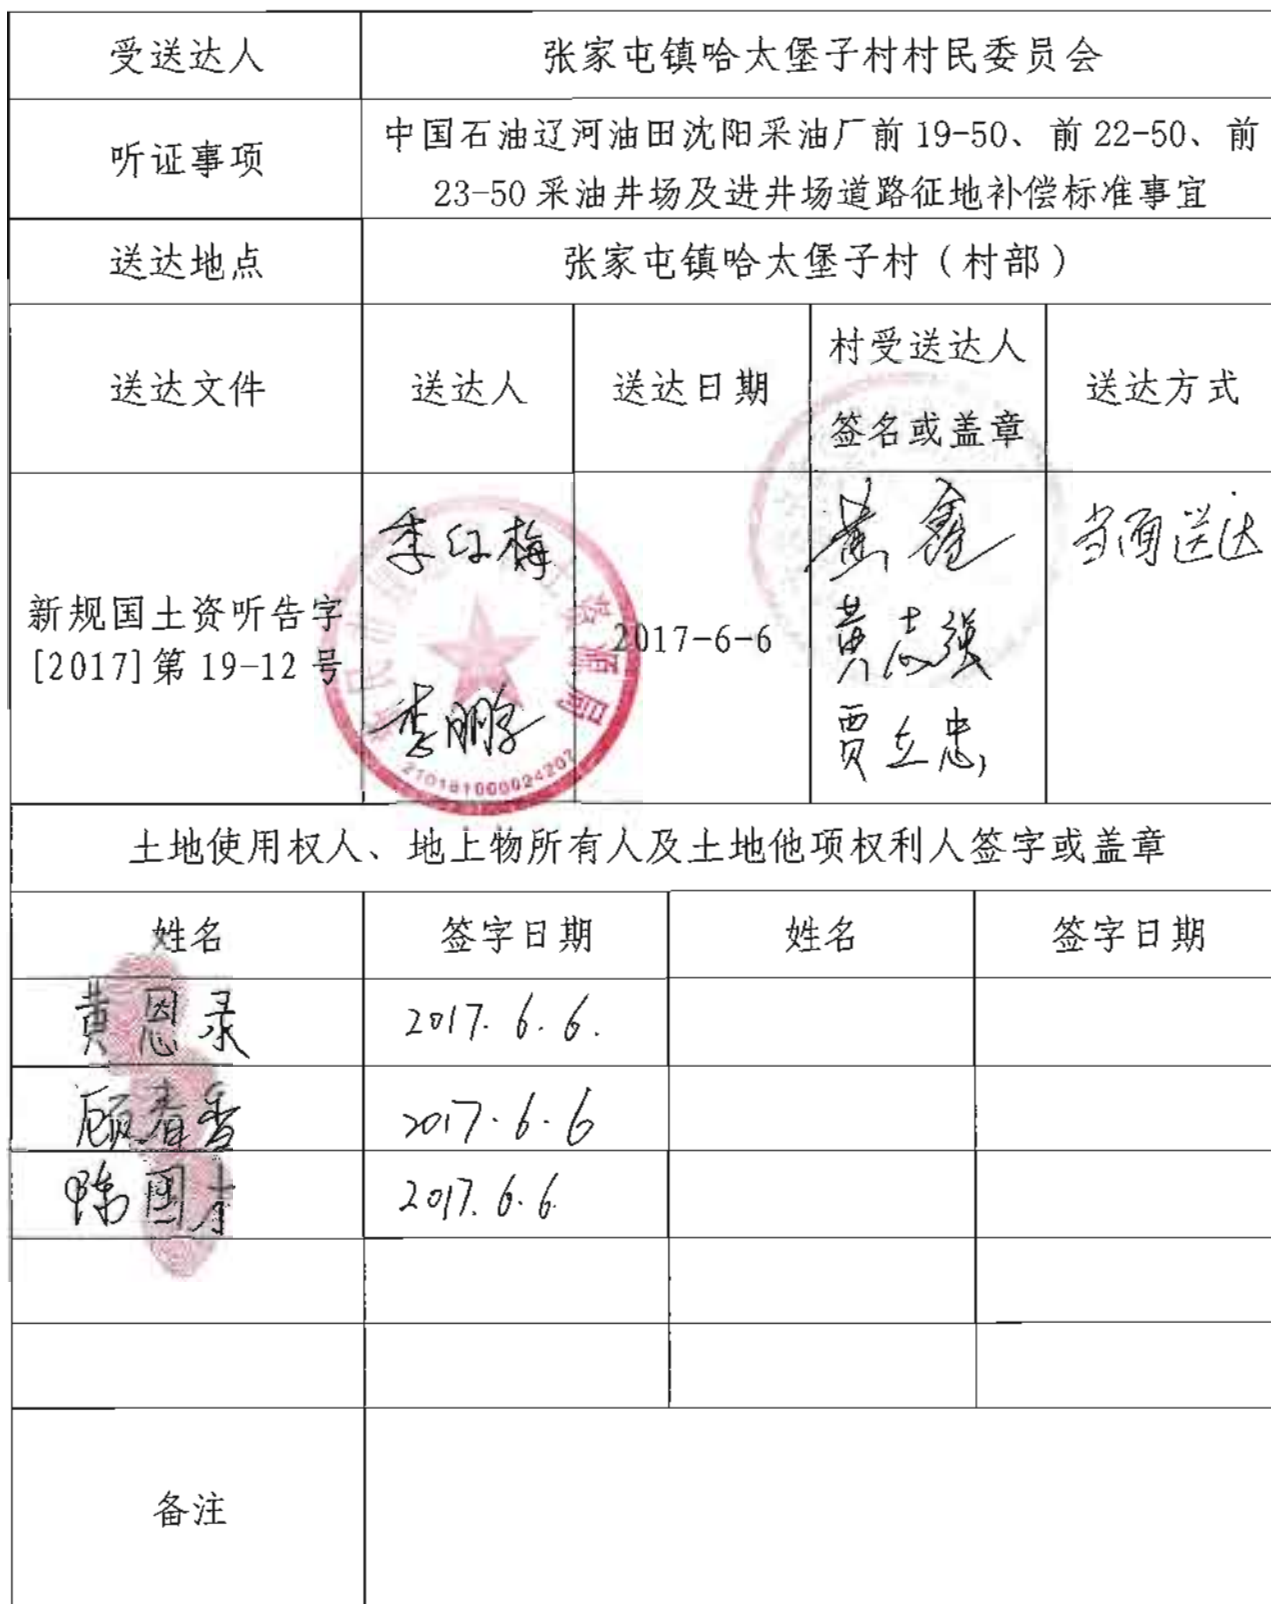 受送达人 张家屯镇哈大堡子村村民委员会
听证事项 中国石油辽河油田沈阳采油厂前 19-50、前 22-50、前
23-50 采油井场及进井场道路征地补偿标准事宜
送达地点 张家屯镇哈太堡子村（村部）
送达文件 送达人 送达日期 村受送达人
签名或盖章 送达方式
李红梅 黄鑫 当面送达
新规国土资听告字
[2017]第 19-12 号 2017-6-6 黄志强
李鹏 贾立忠
资源局
210181000024207
土地使用权人、地上物所有人及土地他项权利人签字或盖章
姓名 签字日期 姓名 签字日期
黄恩录 2017.6.6.
顾春香 2017.6.6
陈国才 2017.6.6
备注